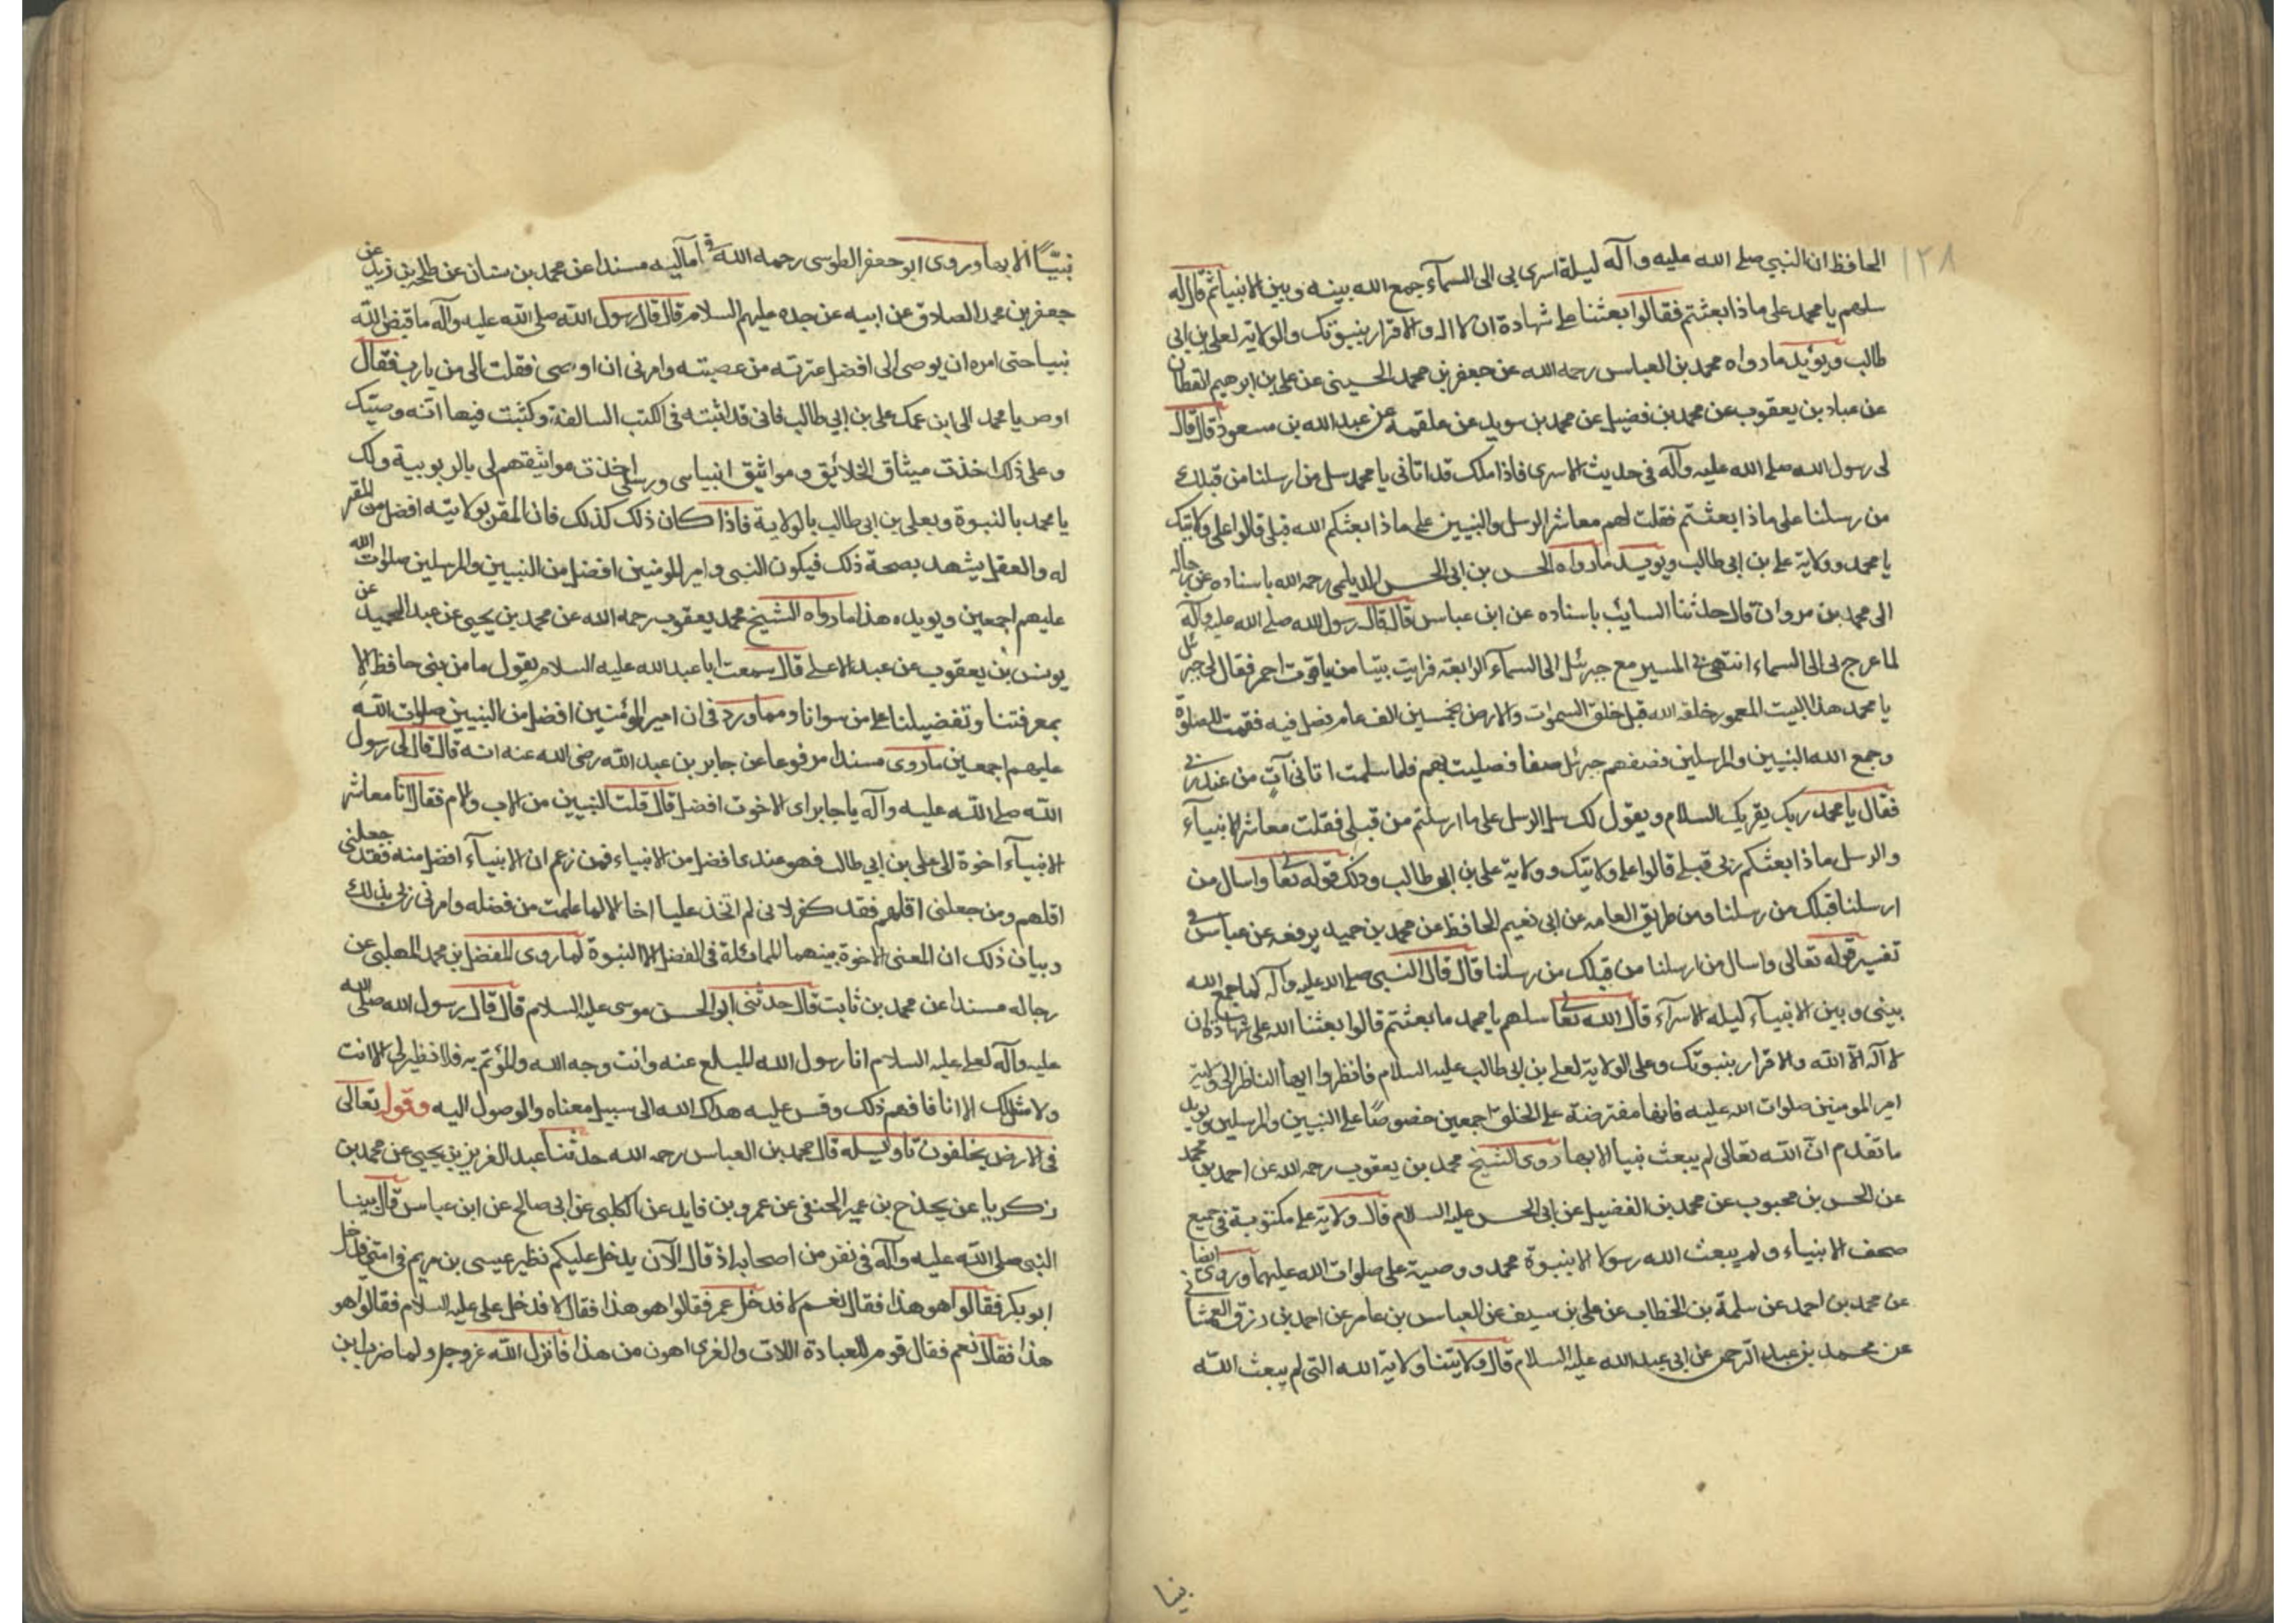 ١٢٨
الحافظ ان النبي صلى الله عليه وآله ليلة اسرى بي الى السمآء جمع الله بينه وبين الانبياء ثم قال له
سلهم يا محمد على ماذا بعثتم فقالوا بعثنا على شهادة ان لا اله والاقرار بنبوتك والولاية لعلى بن ابى
طالب ويؤيد ما رواه محمد بن العباس رحمه الله عن جعفر بن محمد الحسينى عن على بن ابرهيم القطان
عن عباد بن يعقوب عن محمد بن فضيل عن محمد بن سويد عن علقمه عن عبد الله بن مسعود قال قال
لى رسول الله صلى الله عليه وآله فى حديث الاسرى فاذا ملك قد اتانى يا محمد سل من ارسلنا من قبلك
من رسلنا على ماذا بعثتم فقلت لهم معاشر الرسل والنبيين على ماذا بعثكم الله قبلى قالوا على ولايتك
يا محمد وولاية على بن ابى طالب ويويد ما رواه الحسن بن ابى الحسن الديلمى رحمه الله باسناده عن رجاله
الى محمد بن مروان قال حدثنا السائب باسناده عن ابن عباس قال قال رسول الله صلى الله عليه وآله
لما عرج بى الى السماء انتهى بى المسير مع جبرئل الى السمآء الرابعة فرايت بيتا من ياقوت احمر فقال لى جبرئل
يا محمد هذا البيت المعمور خلقه الله قبل خلق السموات والارض بخمسين الف عام فصل فيه فقمت للصلوة
وجمع الله النبيين والمرسلين فصفهم جبرئل صفا فصليت بهم فلما سلمت اتانى آتٍ من عند ربى
فقال يا محمد ربك يقريك السلام ويقول لك سل الرسل على ما ارسلتم من قبلى فقلت معاشر الانبيآء
والرسل ماذا بعثكم ربى قبلى قالوا على ولايتك وولاية على بن ابى طالب وذلك قوله تعا واسال من
ارسلنا قبلك من رسلنا ومن طريق العامه عن ابى نعيم الحافظ عن محمد بن حميد يرفعه عن عباس فى
تفسير قوله تعالى واسال من ارسلنا من قبلك من رسلنا قال قال النبى صلى الله عليه وآله لما جمع الله
بينى وبين الانبيآء ليله الاسرآء قال الله تعا سلهم يا محمد ما بعثتم قالوا بعثنا الله على شهادة ان
لا اله الا الله والاقرار بنبوتك وعلى الولاية لعلى بن ابى طالب عليه السلام فانظروا ايها الناظر الى ولاية
امير المومنين صلوات الله عليه فانها مفترضة على الخلق اجمعين خصوصًا على النبيين والمرسلين ويويد
ما تقدم انّ الله تعالى لم يبعث نبيا الا بها روى الشيخ محمد بن يعقوب رحمه الله عن احمد بن محمد
عن الحسن بن محبوب عن محمد بن الفضيل عن ابى الحسن عليه السلام قال ولاية على مكتوبة فى جميع
صحف الانبياء ولم يبعث الله رسولا الا بنبوة محمد ووصية على صلوات الله عليهما وروى ايضا
عن محمد بن احمد عن سلمة بن الخطاب عن على بن سيف عن العباس بن عامر عن احمد بن رزق الغمشانى
عن محمد بن عبد الرحمن عن ابى عبد الله عليه السلام قال ولايتنا ولاية الله التى لم يبعث الله
نبيا
نبيًّا الا بها وروى ابو جعفر الطوسى رحمه الله فى اماليه مسندا عن محمد بن سنان عن طلحة بن زيد عن
جعفر بن محمد الصادق عن ابيه عن جده عليهم السلام قال قال رسول الله صلى الله عليه وآله ما قبض الله
نبيا حتى امره ان يوصى الى افضل عترته من عصبته وامرنى ان اوصى فقلت الى من يا رب فقال
اوص يا محمد الى ابن عمك على بن ابي طالب فانى قد اثبته فى الكتب السالفة وكتبت فيها انه وصيك
وعلى ذلك اخذت ميثاق الخلائق ومواثيق انبياى ورسلى اخذت مواثيقهم لى بالربوبية ولك
يا محمد بالنبوة وبعلى بن ابى طالب بالولاية فاذا كان ذلك كذلك فان المقر بولايته افضل من المقر
له والعقل يشهد بصحة ذلك فيكون النبى وامير المومنين افضل من النبيين والمرسلين صلوات الله
عليهم اجمعين ويويده هذا ما رواه الشيخ محمد يعقوب رحمه الله عن محمد بن يحيى عن عبد الحميد عن
يونس بن يعقوب عن عبد الاعلى قال سمعت ابا عبد الله عليه السلام يقول ما من نبى حافظ الا
بمعرفتنا وتفضيلنا على من سوانا ومما ورد فى ان امير المؤمنين افضل من النبيين صلوات الله
عليهم اجمعين ما روى مسندا مرفوعا عن جابر بن عبد الله رضى الله عنه انه قال قال لى رسول
الله صلى الله عليه وآله يا جابر اى الاخوت افضل قال قلت النبيين من الاب والام فقال انا معاشر
الانبيآء اخوة الى على بن ابي طالب فهو عندى افضل من الانبياء فمن زعم ان الانبيآء افضل منه فقد جعلنى
اقلهم ومن جعلنى اقلهم فقد كفر لانى لم اتخذ عليا اخا الا لما علمت من فضله وامرنى ربى بذلك
وبيان ذلك ان المعنى الاخوة بينهما المماثلة فى الفضل الا النبوة لما روى المفضل بن محمد المهلبى عن
رجاله مسندا عن محمد بن ثابت قال حدثنى ابو الحسن موسى عليه السلام قال قال رسول الله صلى الله
عليه وآله لعلى عليه السلام انا رسول الله المبلغ عنه وانت وجه الله والمؤتم به فلا نظير لى الا انت
ولا مثلك الا انا فافهم ذلك وقس عليه هداك الله الى سبيل معناه والوصول اليه وقول تعالى
فى الارض يخلفون تاويله قال محمد بن العباس رحمه الله حدثنا عبد العزيز بن يحيى عن محمد بن
زكريا عن يحذج بن عمير الحنفى عن عمرو بن فايد عن الكلبى عن ابى صالح عن ابن عباس قال بينا
النبى صلى الله عليه وآله فى نفر من اصحابه اذ قال الآن يدخل عليكم نظير عيسى بن مريم فى امتى فدخل
ابو بكر فقالوا هو هذا فقال نعم لا فدخل عمر فقالوا هو هذا فقال لا فدخل على عليه السلام فقالوا هو
هذا فقال نعم فقال قوم للعبادة اللات والغرى اهون من هذا فانزل الله عز وجل ولما ضرب ابن